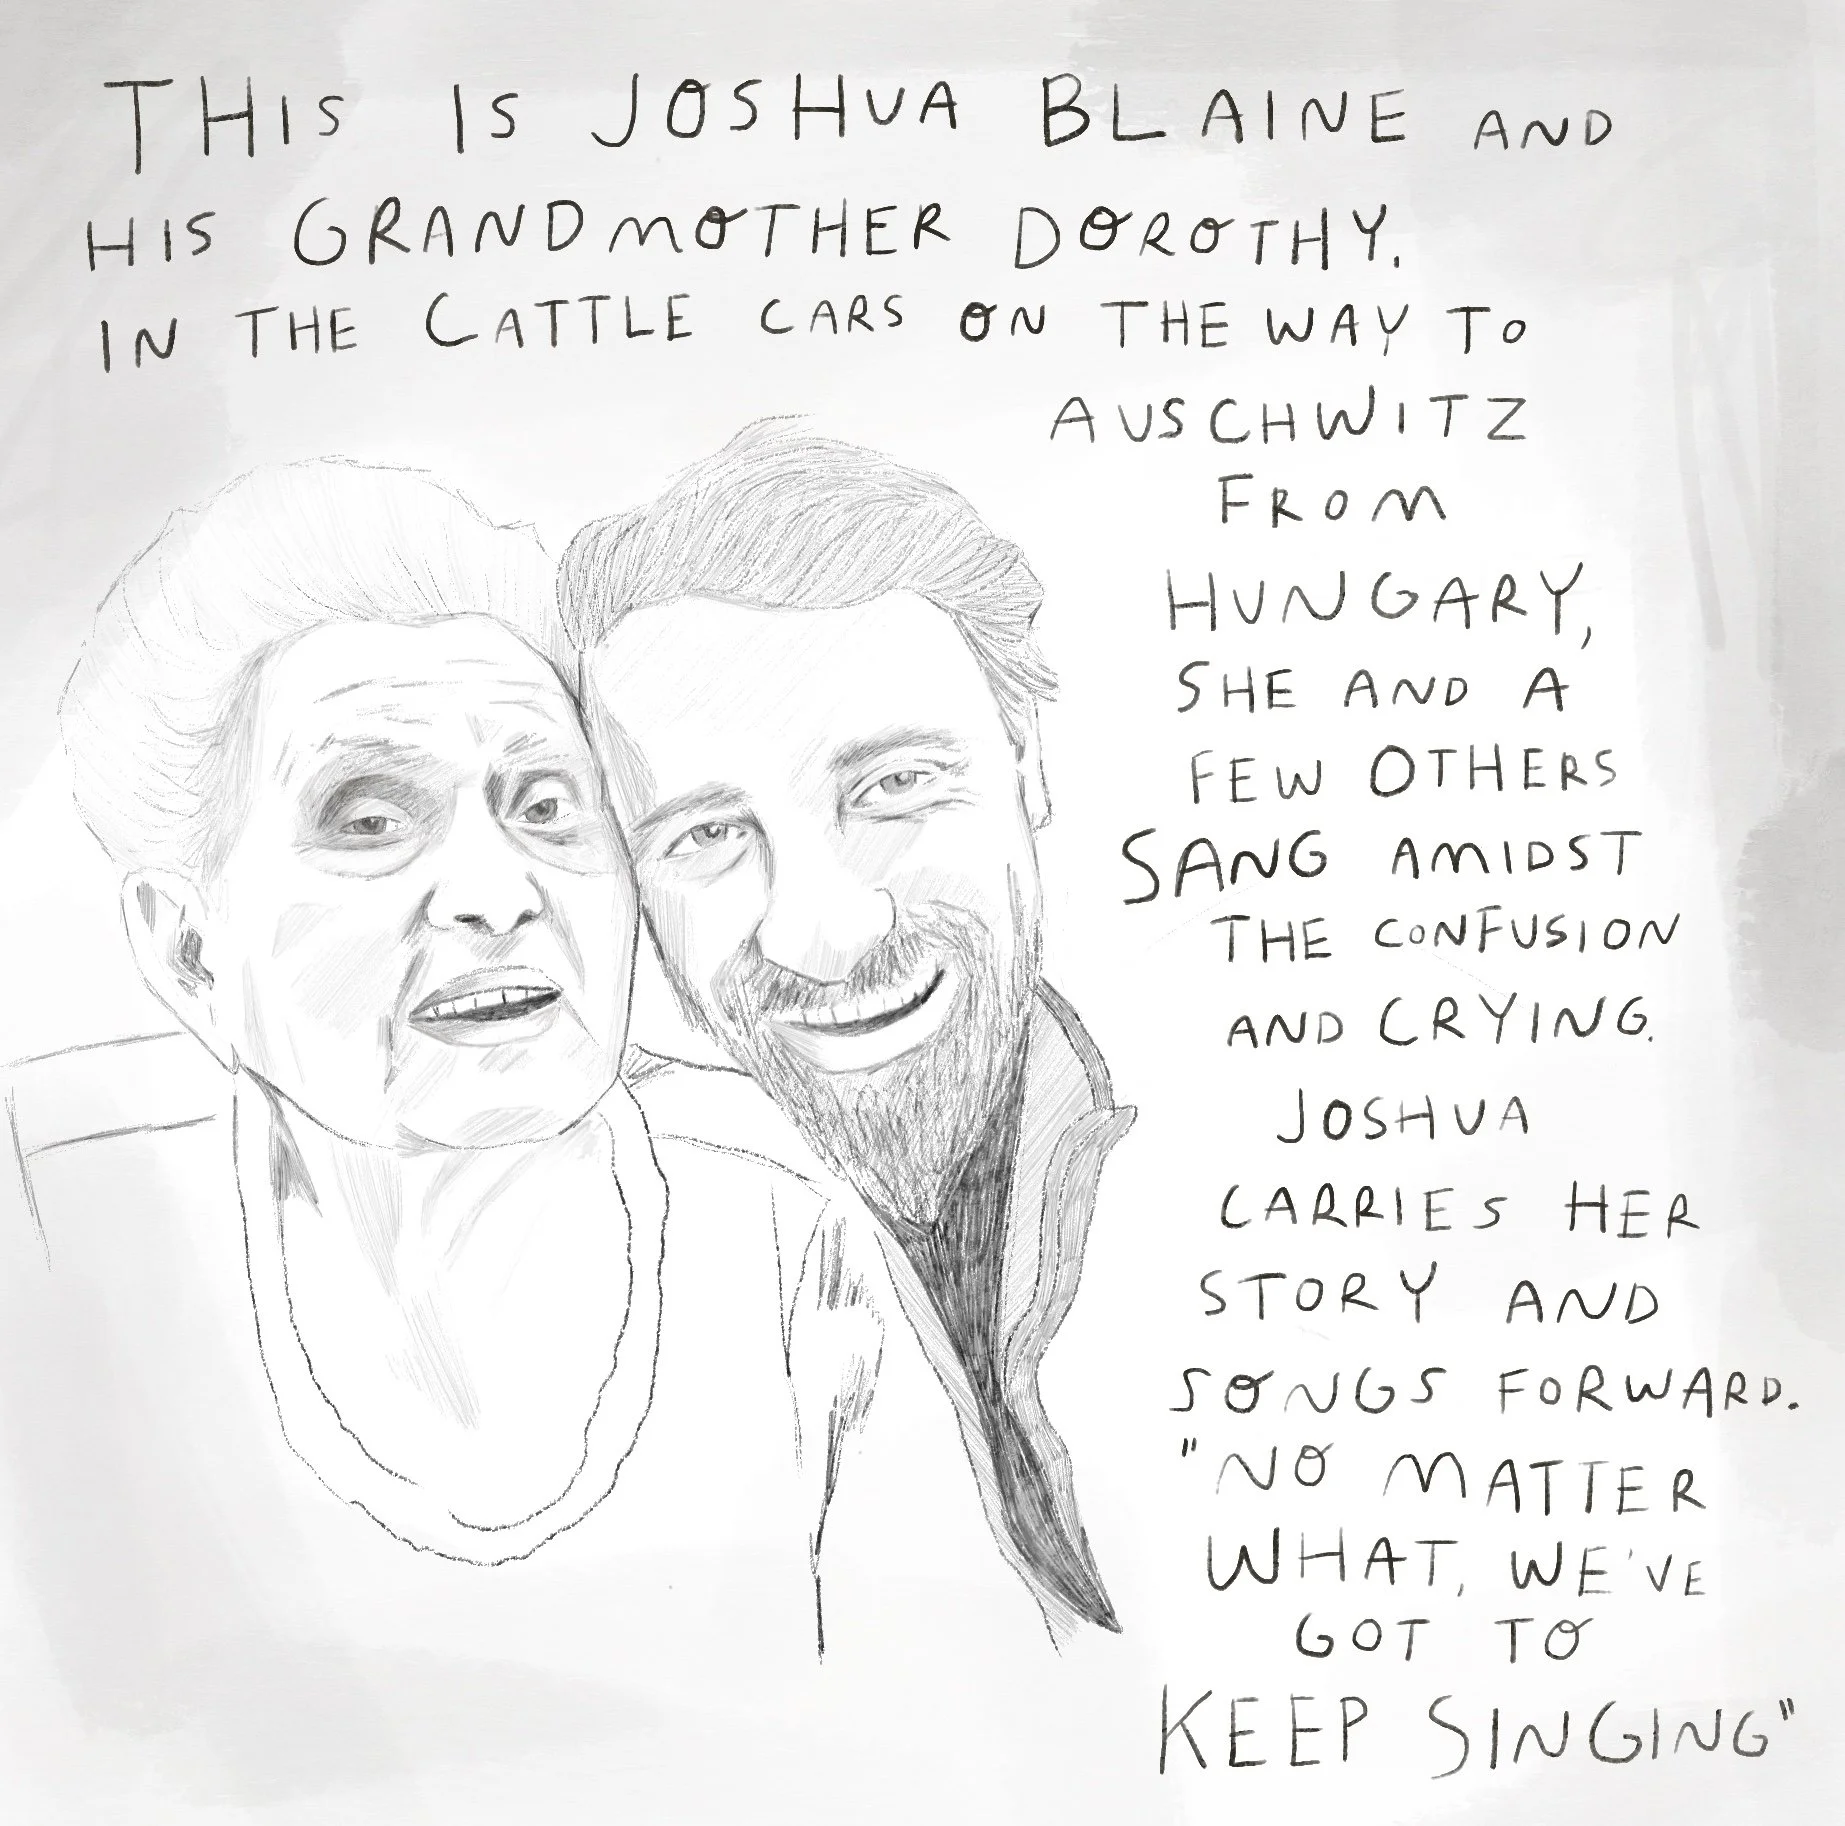 THIS IS JOSHUA BLAINE AND
HIS GRANDMOTHER DOROTHY.
IN THE CATTLE CARS ON THE WAY TO
AUSCHWITZ
FROM
HUNGARY,
SHE AND A
FEW OTHERS
SANG AMIDST
THE CONFUSION
AND CRYING.
JOSHUA
CARRIES HER
STORY AND
SONGS FORWARD.
"NO MATTER
WHAT, WE'VE
GOT TO
KEEP SINGING"